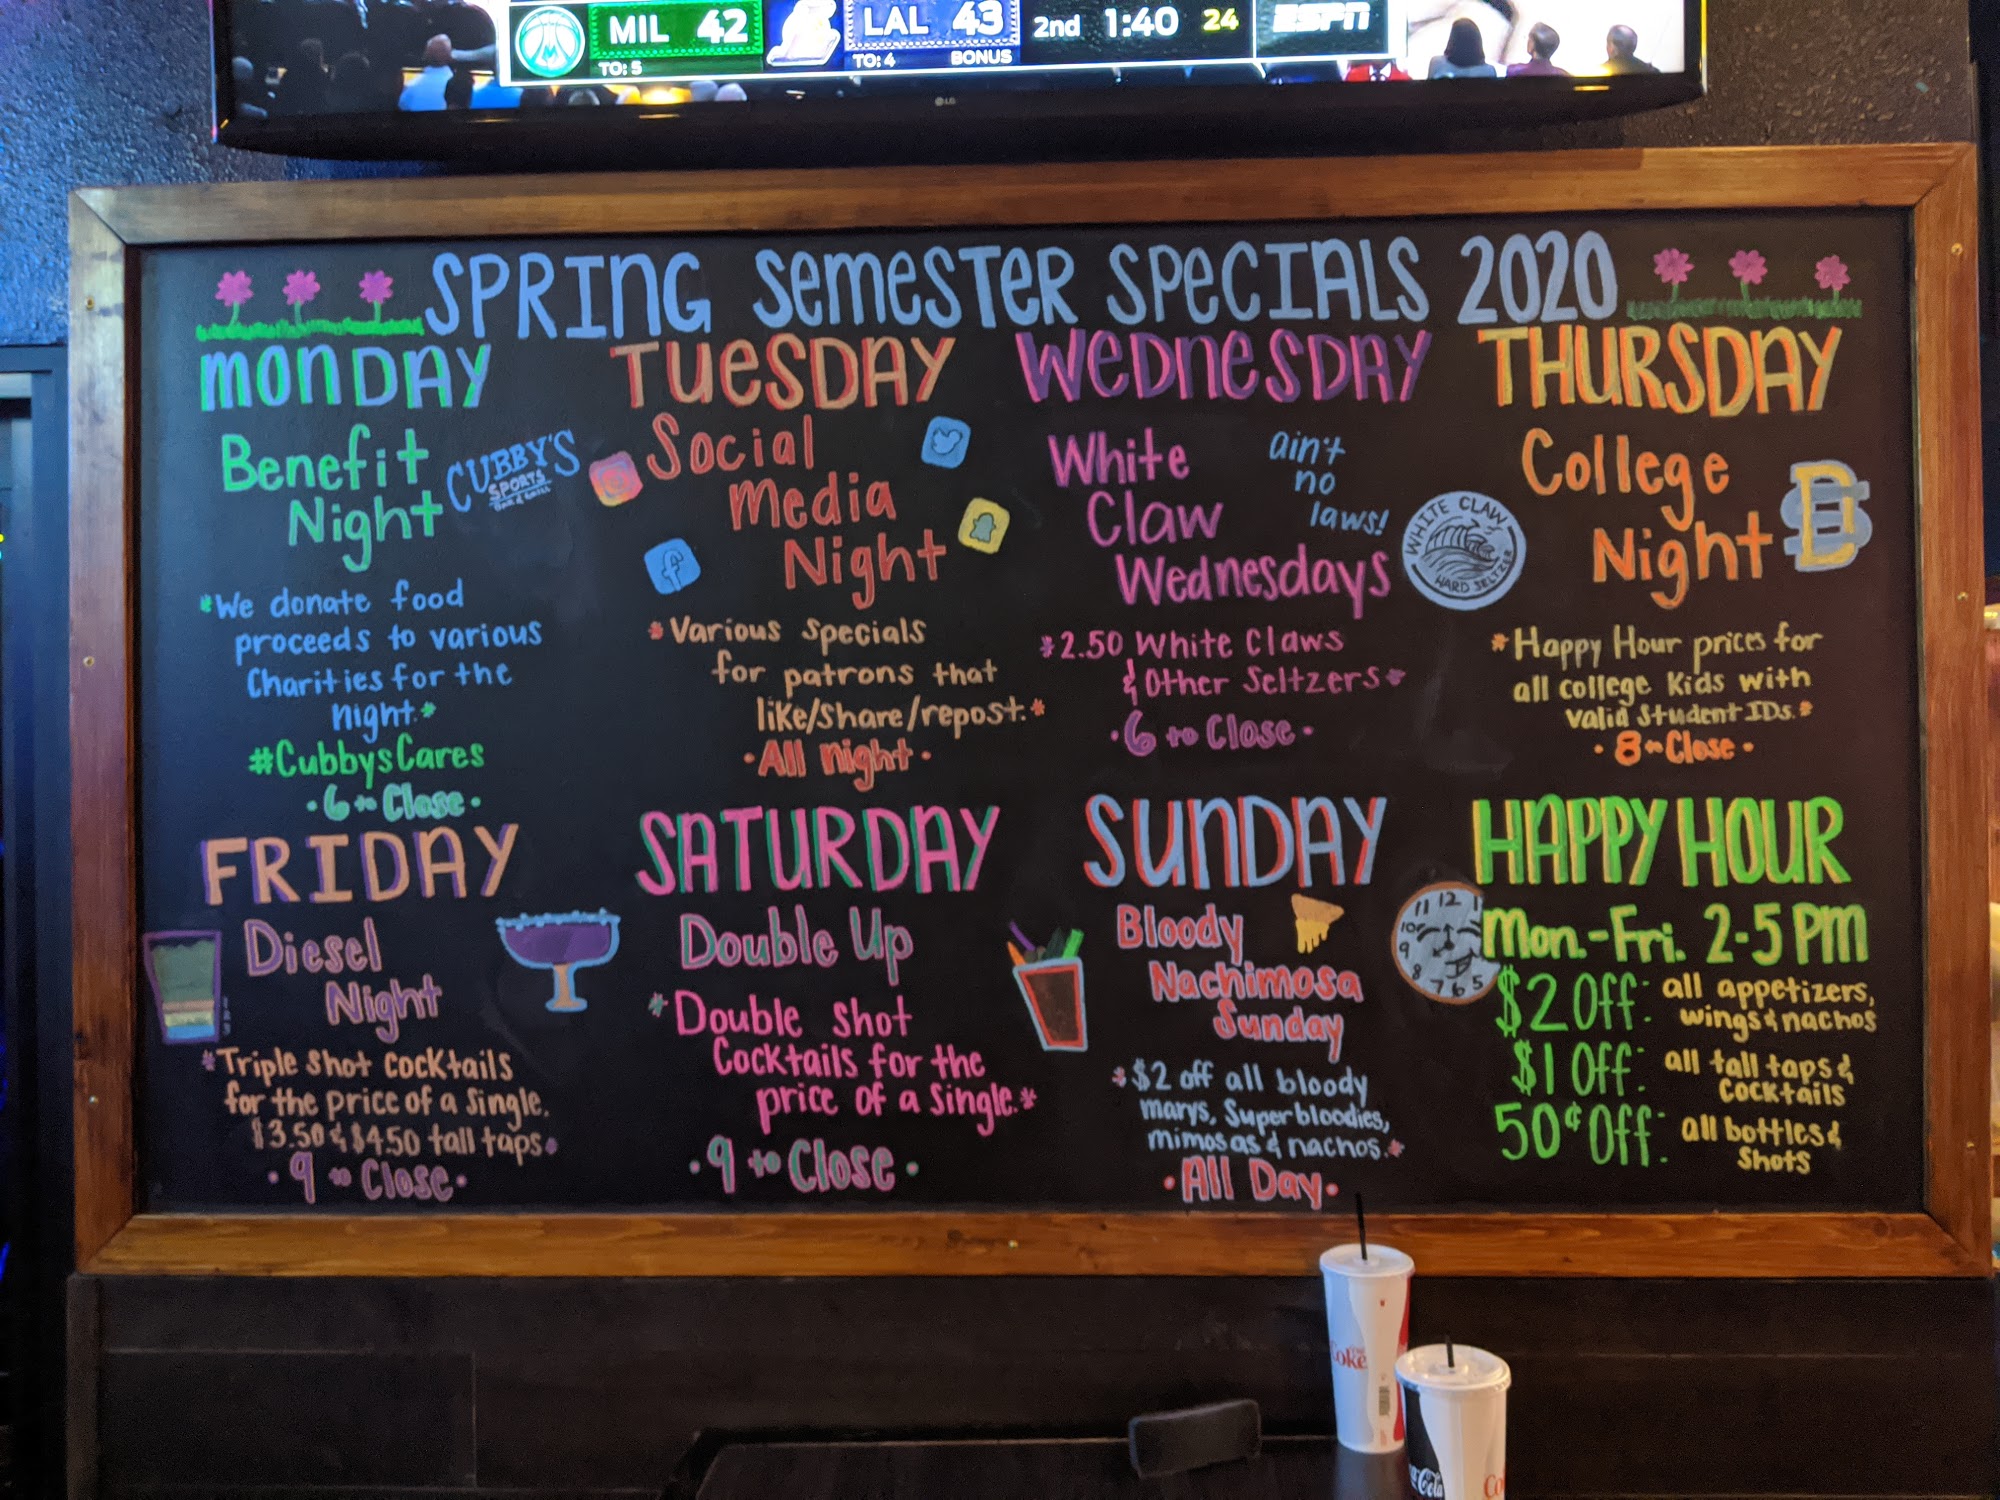 MIL 42 LAL 43 2nd 1:40 24 ESPN
TO: 5 TO: 4 BONUS
LG
SPRING SEMESTER SPECIALS 2020
MONDAY
Benefit
Night
CUBBY'S
SPORTS
BAR & GRILL
*We donate food
proceeds to various
Charities for the
night.*
#CubbysCares
·6 to Close·
TUESDAY
Social
Media
Night
f
*Various specials
for patrons that
like/share/repost.*
·All night·
WEDNESDAY
White
Claw
Wednesdays
ain't
no
laws!
WHITE CLAW
HARD SELTZER
*2.50 White Claws
& Other Seltzers*
·6 to Close·
THURSDAY
College
Night
*Happy Hour prices for
all college kids with
valid student IDs.*
·8 to Close·
FRIDAY
Diesel
Night
*Triple shot cocktails
for the price of a single.
$3.50 & $4.50 tall taps*
·9 to Close·
SATURDAY
Double Up
*Double shot
Cocktails for the
price of a single.*
·9 to Close·
SUNDAY
Bloody
Nachimosa
Sunday
*$2 off all bloody
marys, Super bloodies,
mimosas & nachos.*
·All Day·
HAPPY HOUR
11 12 1
10
9
8 7 6 5
Mon.-Fri. 2-5 PM
$2 Off: all appetizers,
wings & nachos
$1 Off: all tall taps &
Cocktails
50¢ Off: all bottles &
Shots
Coke
Cola
Co